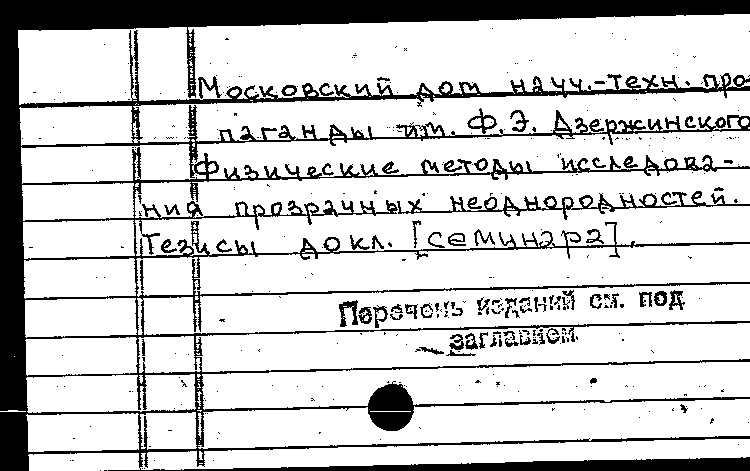 Московский дом науч.-техн. про-
паганды им. Ф.Э. Дзержинского
Физические методы исследова-
ния прозрачных неоднородностей.
Тезисы докл. [семинара].
Перечень изданий см. под
заглавием